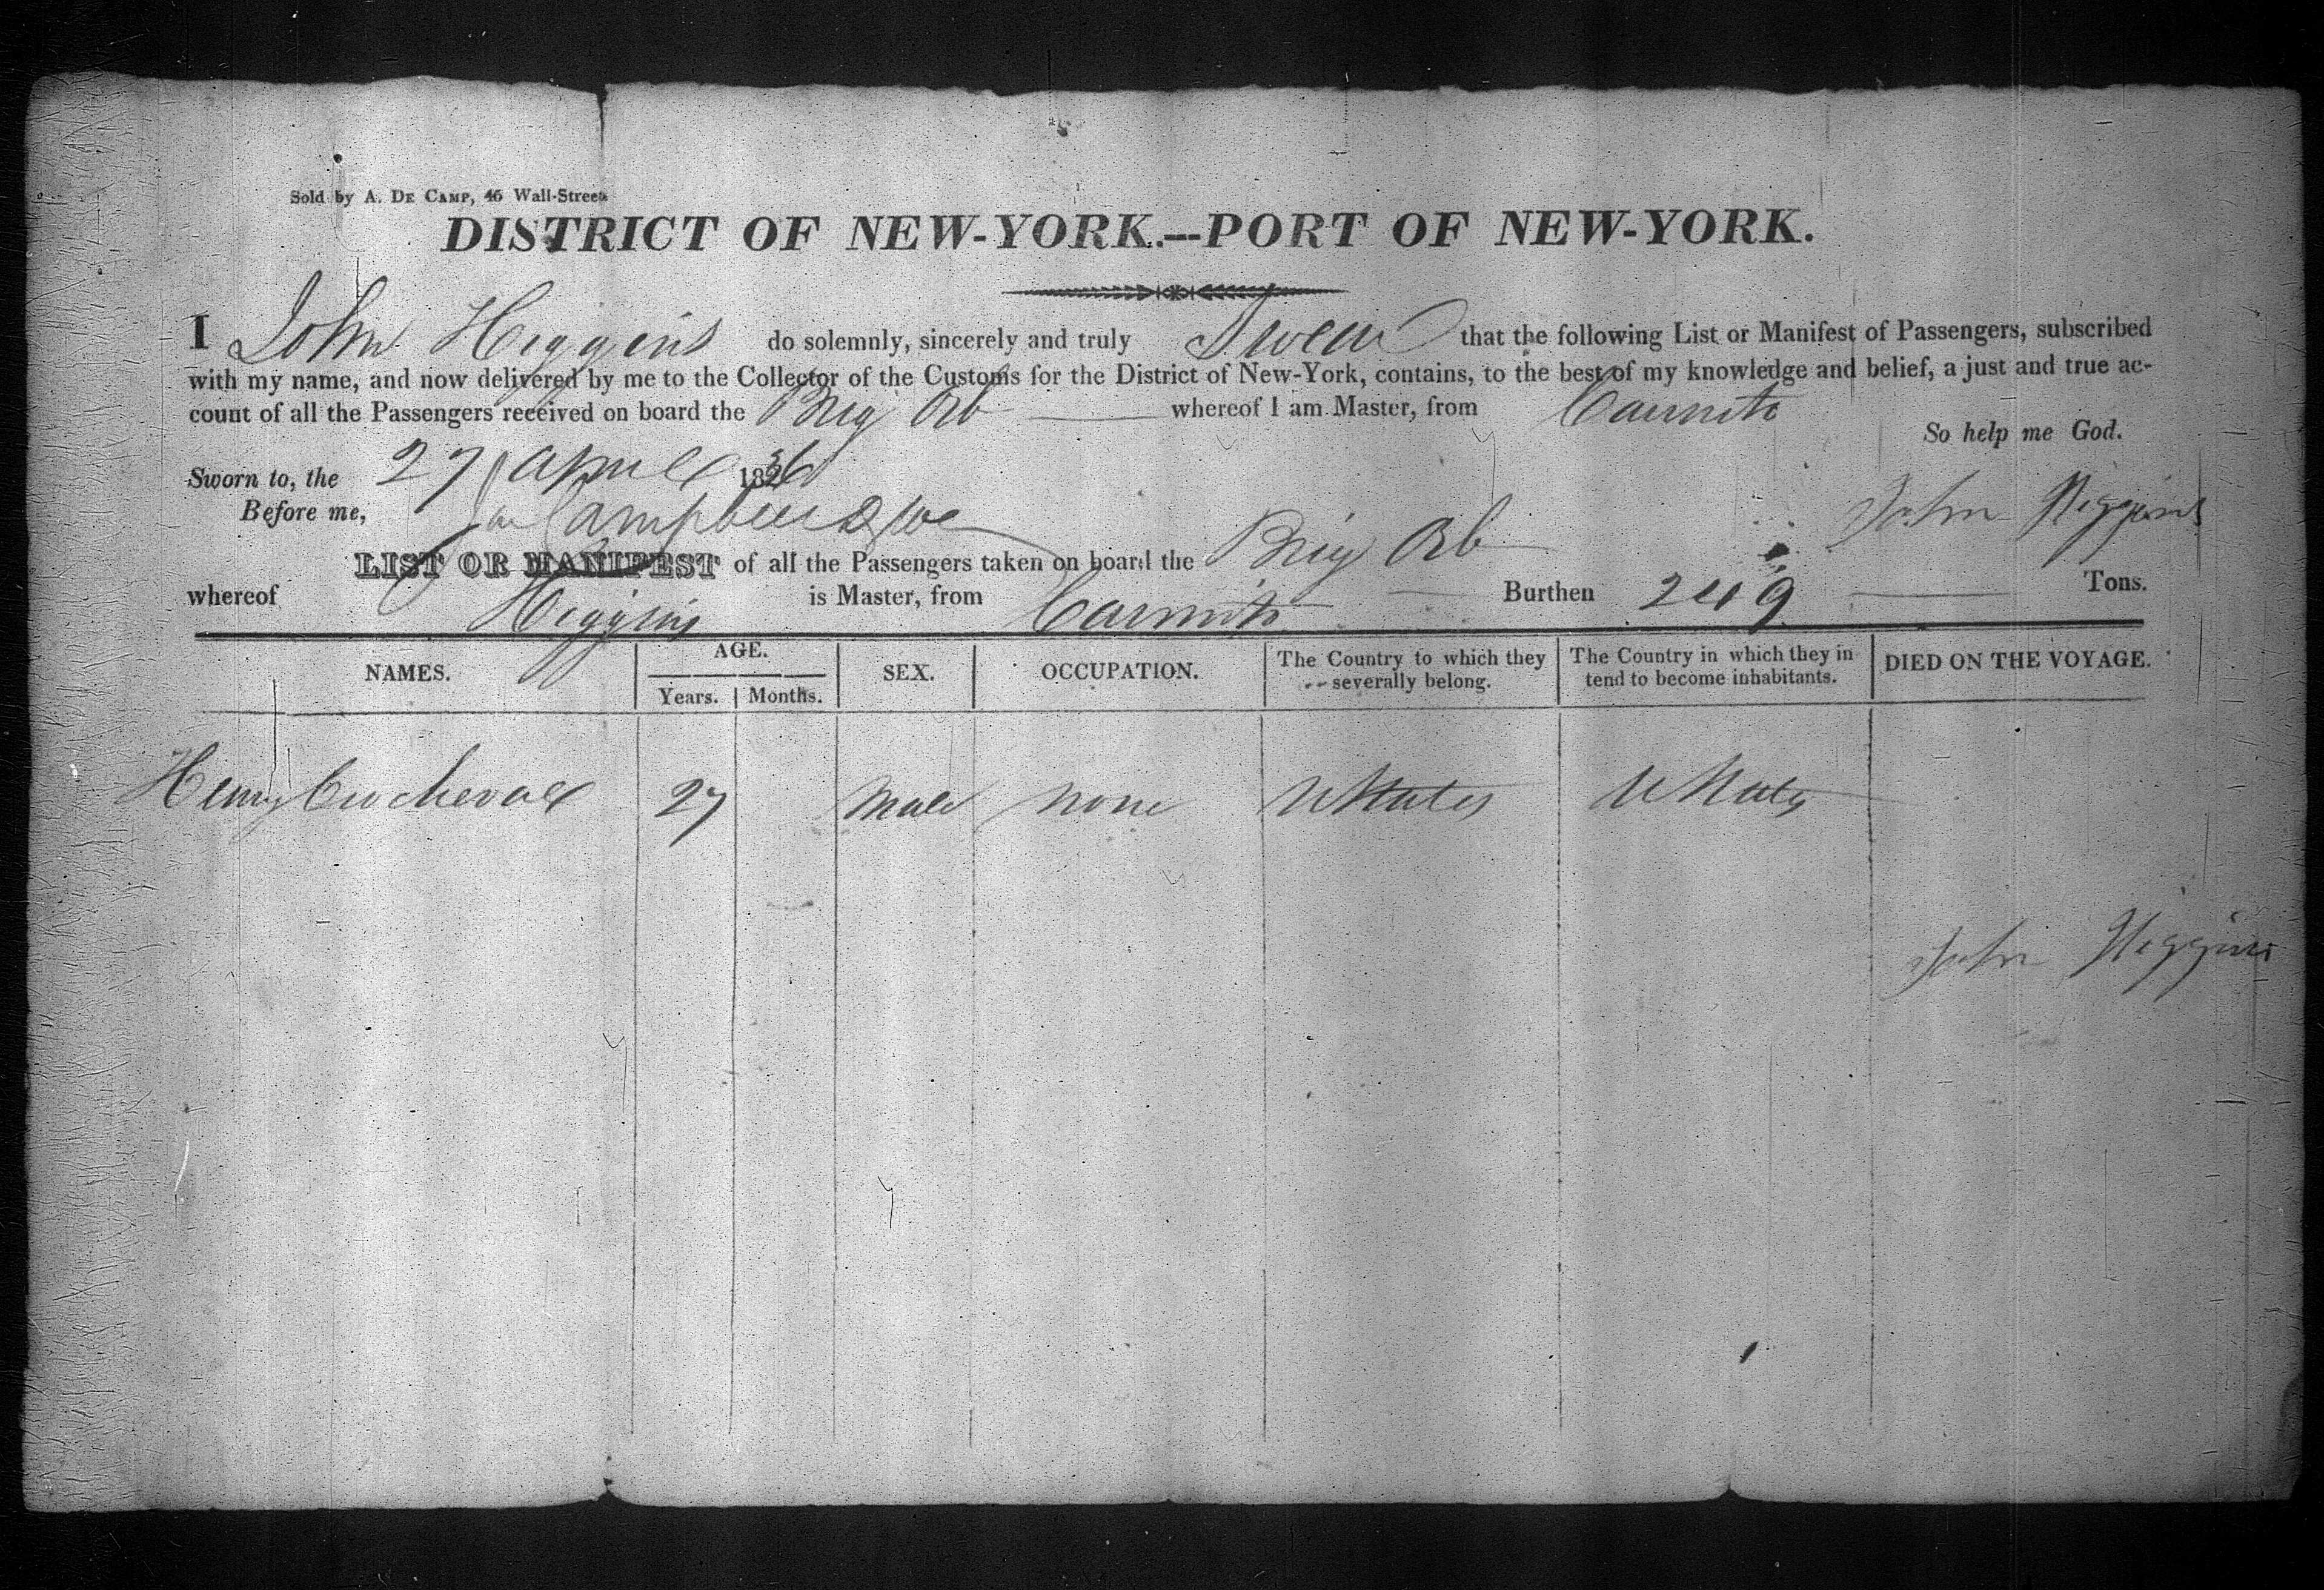 Sold by A. DE CAMP, 46 Wall-Street.
DISTRICT OF NEW-YORK.--PORT OF NEW-YORK.
I John Higgins do solemnly, sincerely and truly Swear that the following List or Manifest of Passengers, subscribed
with my name, and now delivered by me to the Collector of the Customs for the District of New-York, contains, to the best of my knowledge and belief, a just and true ac-
count of all the Passengers received on board the Brig Orb whereof I am Master, from
So help me God.
Sworn to, the 27 April 1836
Before me,
John Higgins
LIST OR MANIFEST of all the Passengers taken on board the Brig Orb
whereof Higgins is Master, from Burthen 249 Tons.
NAMES. AGE. Years. Months. SEX. OCCUPATION. The Country to which they severally belong. The Country in which they intend to become inhabitants. DIED ON THE VOYAGE.
Henry 27 Male none U States U States
John Higgins